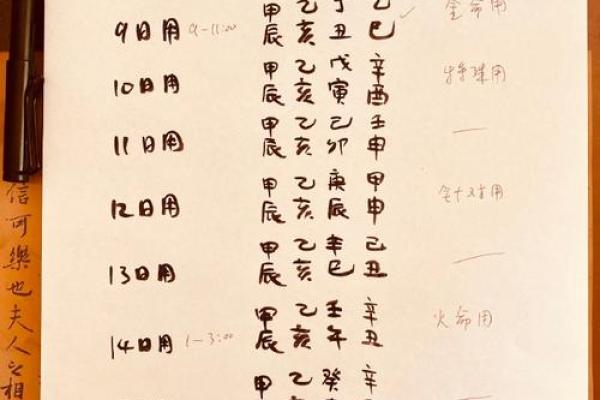 甲 乙 丁 乙 金命用
9日用 9-11:00 辰 亥 丑 巳
甲 乙 戊 辛
10日用 辰 亥 寅 酉 特殊用
甲 乙 己 壬
11日用 辰 亥 卯 申
甲 乙 庚 甲
12日用 辰 亥 辰 申 针对用
甲 乙 辛 己
13日用 辰 亥 巳 丑
甲 乙 壬 辛
14日用 1-3:00 辰 亥 午 丑 火命用
甲 乙 癸 辛
信可樂也夫人之相